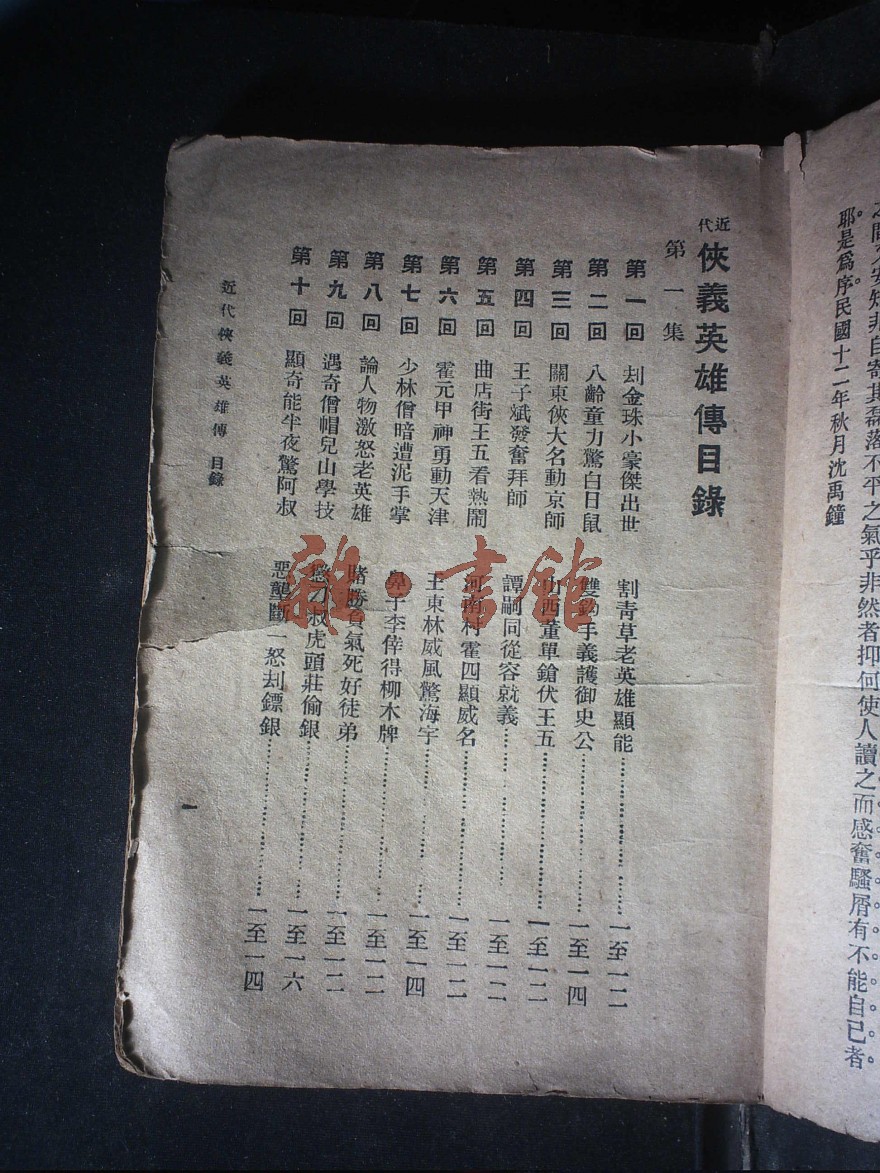 之間又安知非自寄其磊落不平之氣乎非然者抑何使人讀之而感奮騷屑有不能自已者
耶是爲序民國十二年秋月沈禹鐘
近代俠義英雄傳目錄
第一集
第一回 刦金珠小豪傑出世 割靑草老英雄顯能 一至一二
第二回 八齡童力驚白日鼠 雙鈎手義護御史公 一至一四
第三回 關東俠大名動京師 山西董單鎗伏王五 一至一二
第四回 王子斌發奮拜師 譚嗣同從容就義 一至一二
第五回 曲店街王五看熱鬧 河南村霍四顯威名 一至一二
第六回 霍元甲神勇動天津 王東林威風驚海宇 一至一四
第七回 少林僧暗遭泥手掌 鼻子李倖得柳木牌 一至一二
第八回 論人物激怒老英雄 賭勝負氣死好徒弟 一至一二
第九回 遇奇僧帽兒山學技 惩刁叔虎頭莊偷銀 一至一六
第十回 顯奇能半夜驚阿叔 惡壟斷一怒刦鏢銀 一至一四
近代俠義英雄傳 目錄
一
雜·書館